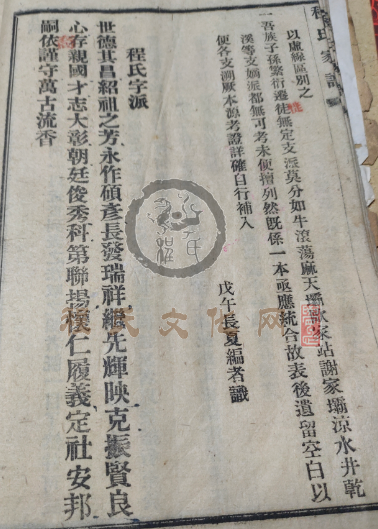 程氏家譜
以虛線區別之
一吾族子孫繁衍遷徙無定支派莫分如牛滾蕩麻天壩歐家站謝家壩涼水井乾
溪等支嫡派都無可考未便擅列然既係一本亟應統合故表後遺留空白以
便各支溯厥本源考證詳確自行補入
戊午長夏編者識
程氏字派
世德其昌紹祖之芳永作碩彥長發瑞祥繼先輝映克振賢良
心存親國才志大彰朝廷俊秀科第聯揚懷仁履義定社安邦
嗣依謹守萬古流香
程氏文化网